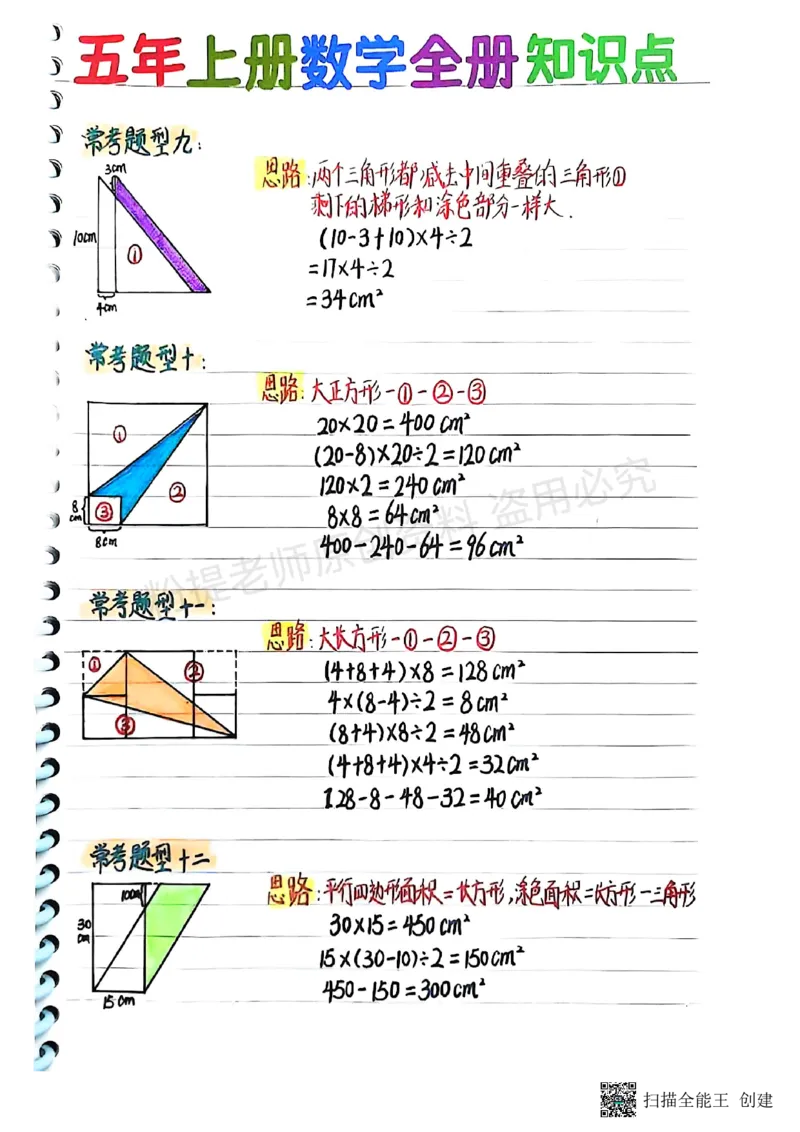 五年上册数学全册知识点
常考题型九:
3cm
10cm
①
4cm
思路:两个三角形都减去中间重叠的三角形①
剩下的梯形和涂色部分一样大.
(10-3+10)×4÷2
=17×4÷2
=34cm²
常考题型十:
①
②
8
cm
③
8cm
思路:大正方形-①-②-③
20×20=400cm²
(20-8)×20÷2=120cm²
120×2=240cm²
8×8=64cm²
400-240-64=96cm²
粉提老师原创资料 盗用必究
常考题型十一:
①
②
③
思路:大长方形-①-②-③
(4+8+4)×8=128cm²
4×(8-4)÷2=8cm²
(8+4)×8÷2=48cm²
(4+8+4)×4÷2=32cm²
128-8-48-32=40cm²
常考题型十二
10cm
30
cm
15cm
思路:平行四边形面积=长方形,涂色面积=长方形-三角形
30×15=450cm²
15×(30-10)÷2=150cm²
450-150=300cm²
扫描全能王 创建